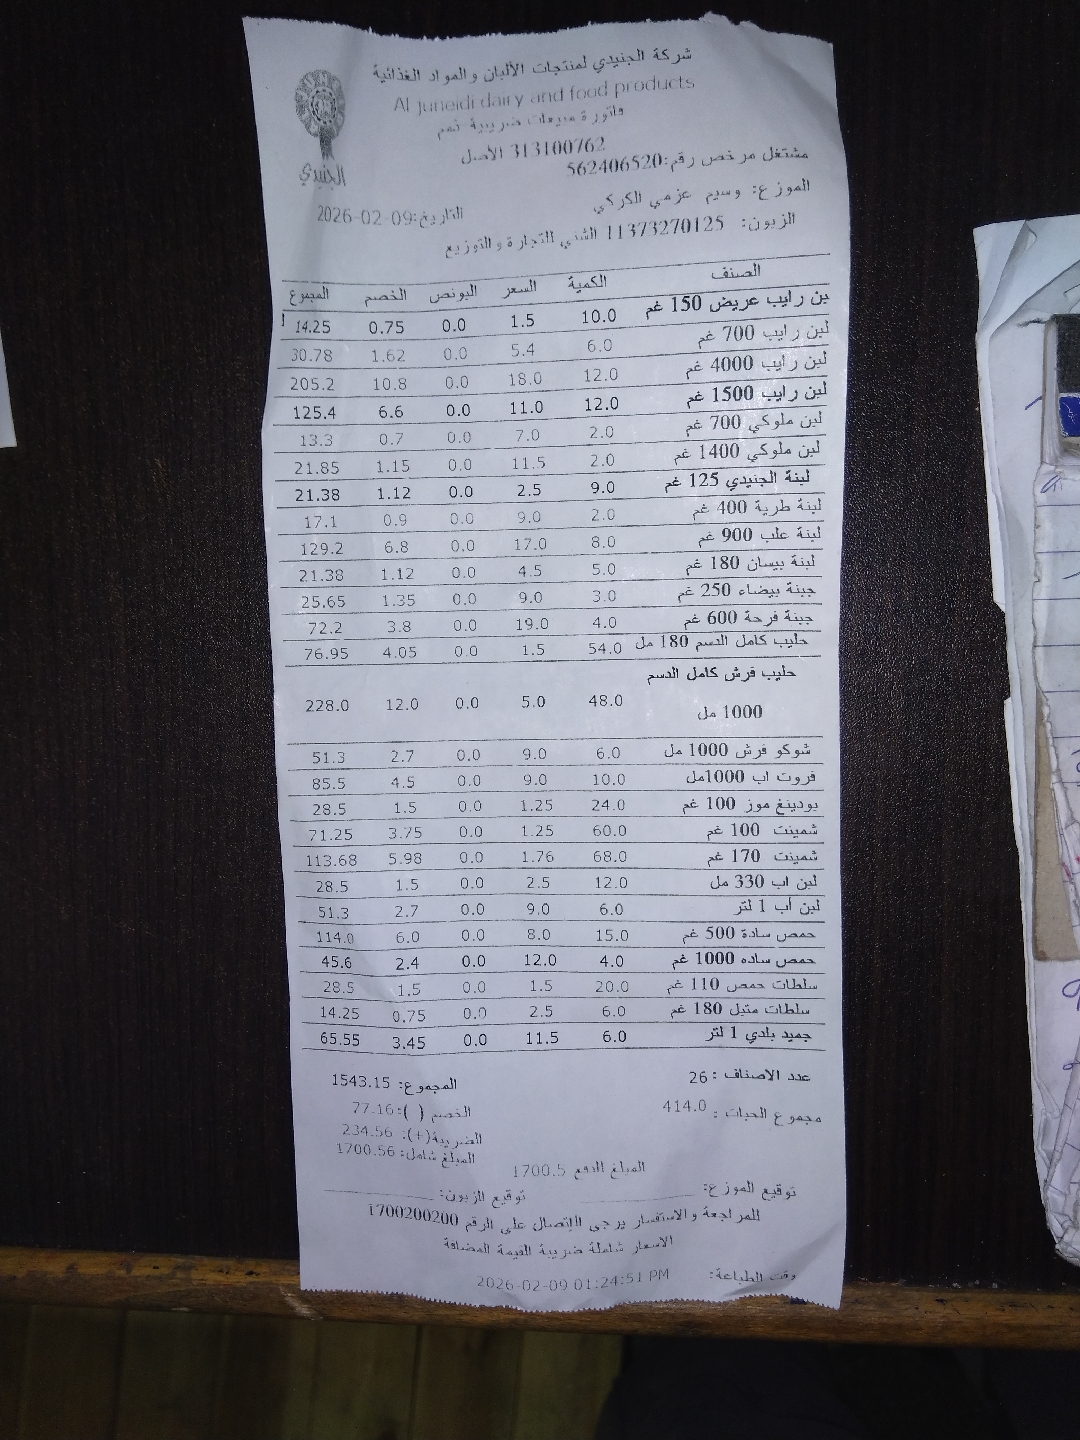 شركة الجنيدي لمنتجات الألبان والمواد الغذائية
Al juneidi dairy and food products
فاتورة مبيعات ضريبية ذمم
313100762 الأصل
الجنيدي
مشتغل مرخص رقم:562406520
الموزع: وسيم عزمي الكركي
التاريخ:2026-02-09
الزبون: 11373270125 الشني للتجارة والتوزيع
الصنف الكمية السعر البونص الخصم المجموع
بن رايب عريض 150 غم 10.0 1.5 0.0 0.75 14.25
لبن رايب 700 غم 6.0 5.4 0.0 1.62 30.78
لبن رايب 4000 غم 12.0 18.0 0.0 10.8 205.2
لبن رايب 1500 غم 12.0 11.0 0.0 6.6 125.4
لبن ملوكي 700 غم 2.0 7.0 0.0 0.7 13.3
لبن ملوكي 1400 غم 2.0 11.5 0.0 1.15 21.85
لبنة الجنيدي 125 غم 9.0 2.5 0.0 1.12 21.38
لبنة طرية 400 غم 2.0 9.0 0.0 0.9 17.1
لبنة علب 900 غم 8.0 17.0 0.0 6.8 129.2
لبنة بيسان 180 غم 5.0 4.5 0.0 1.12 21.38
جبنة بيضاء 250 غم 3.0 9.0 0.0 1.35 25.65
جبنة فرحة 600 غم 4.0 19.0 0.0 3.8 72.2
حليب كامل الدسم 180 مل 54.0 1.5 0.0 4.05 76.95
حليب فرش كامل الدسم
1000 مل 48.0 5.0 0.0 12.0 228.0
شوكو فرش 1000 مل 6.0 9.0 0.0 2.7 51.3
فروت اب 1000مل 10.0 9.0 0.0 4.5 85.5
بودينغ موز 100 غم 24.0 1.25 0.0 1.5 28.5
شمينت 100 غم 60.0 1.25 0.0 3.75 71.25
شمينت 170 غم 68.0 1.76 0.0 5.98 113.68
لبن اب 330 مل 12.0 2.5 0.0 1.5 28.5
لبن أب 1 لتر 6.0 9.0 0.0 2.7 51.3
حمص سادة 500 غم 15.0 8.0 0.0 6.0 114.0
حمص ساده 1000 غم 4.0 12.0 0.0 2.4 45.6
سلطات حمص 110 غم 20.0 1.5 0.0 1.5 28.5
سلطات متبل 180 غم 6.0 2.5 0.0 0.75 14.25
جميد بلدي 1 لتر 6.0 11.5 0.0 3.45 65.55
عدد الاصناف : 26 المجموع: 1543.15
مجموع الحبات : 414.0 الخصم ( ):77.16
الضريبة(+): 234.56
المبلغ شامل: 1700.56
المبلغ الدفع 1700.5
توقيع الموزع: توقيع الزبون:
للمراجعة والاستفسار يرجى الاتصال على الرقم 1700200200
الاسعار شاملة ضريبة القيمة المضافة
وقت الطباعة: 2026-02-09 01:24:51 PM